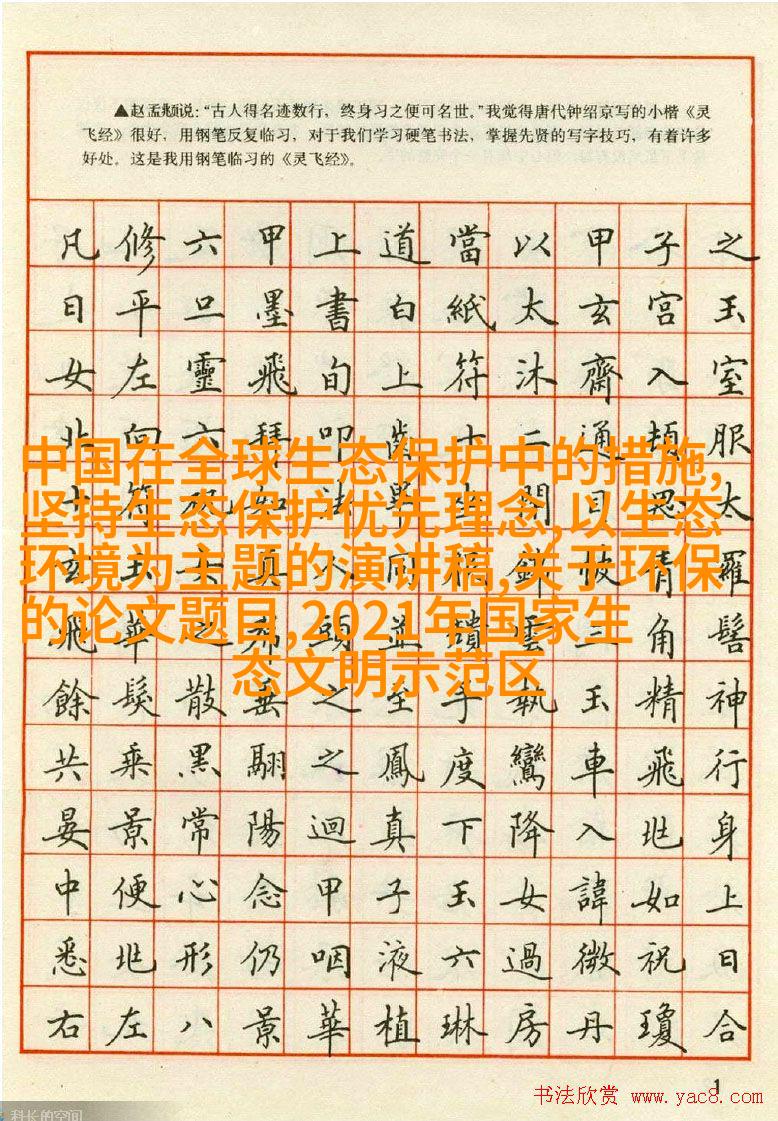 ▲赵孟頫说：“古人得名迹数行，终身习之便可名世。”我觉得唐代钟绍京写的小楷《灵
飞经》很好，用钢笔反复临习，对于我们学习硬笔书法，掌握先贤的写字技巧，有着许多
好处。这是我用钢笔临习的《灵飞经》。
凡修六甲上道當以甲子之
日平旦墨書白紙太玄宮玉
女左靈飛旬上符沐齋入室
北向六拜叩齒十二通頓服
中国在全球生态保护中的措施,
十符祝如法畢目思太
坚持生态保护优先理念,以生态
玄玉女真人同青羅
环境为主题的演讲稿,关于环保
飛華之頭並雲三角髻
的论文题目,2021年国家生
态文明示范区
餘髮散垂之至手執玉精神
共乘黑翮之鳳度鸞車飛行
晏景常陽迴真下降入兆身
中便心念甲子玉女諱如上
悉兆形仍咽液六過微祝曰
右左八景華植琳房丹瓊合
1
书法欣赏 www.yac8.com
科长的空间